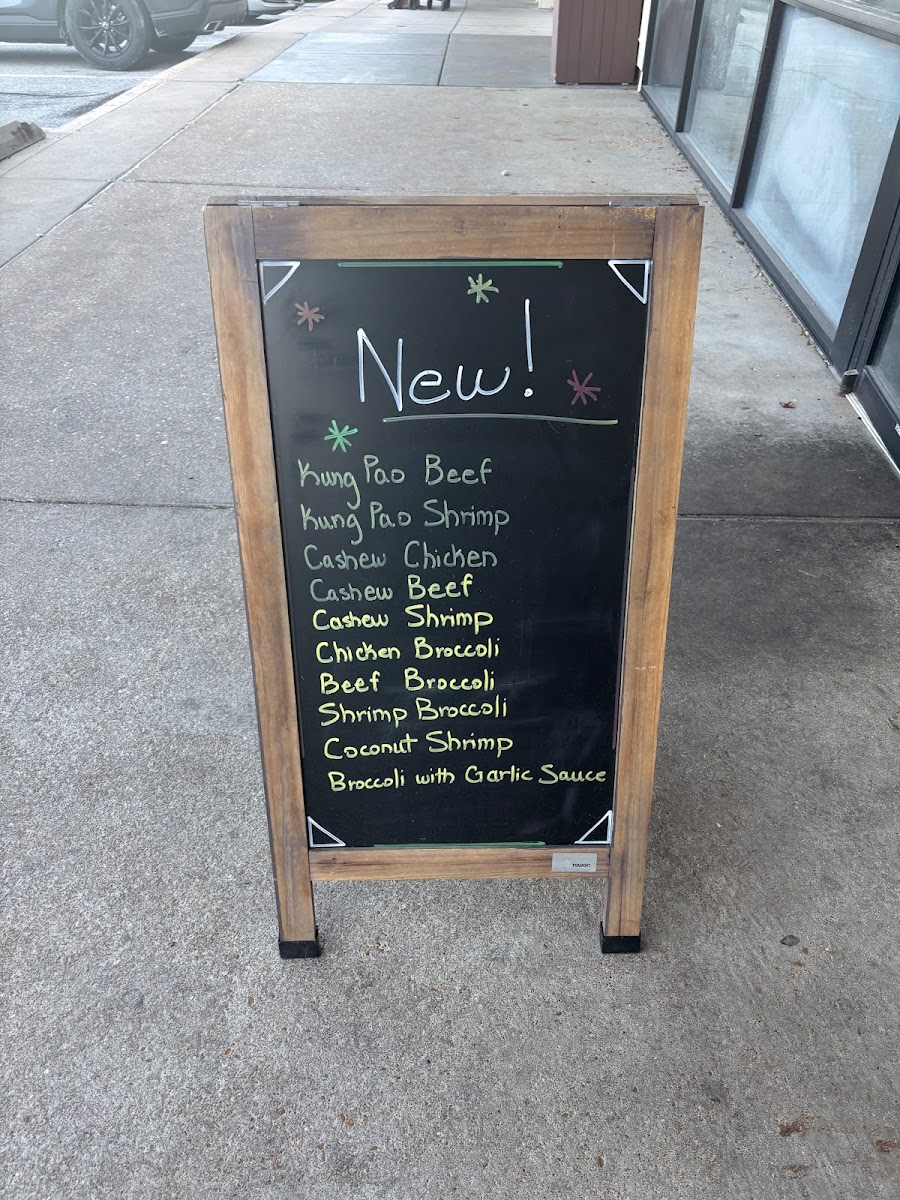 New!
Kung Pao Beef
Kung Pao Shrimp
Cashew Chicken
Cashew Beef
Cashew Shrimp
Chicken Broccoli
Beef Broccoli
Shrimp Broccoli
Coconut Shrimp
Broccoli with Garlic Sauce
TOWON